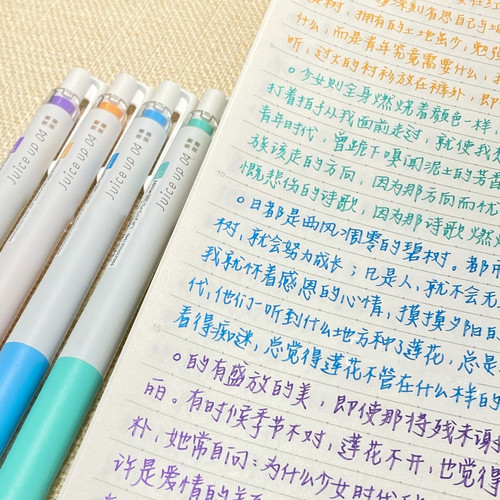 Juice up 04
Juice up 04
Juice up 04
Juice up 04
树,拥有的土地虽少,勉强
什么,而是青年究竟需要什么,
听,过大的衬衫放在裤外,即
○少女则全身燃烧着颜色一样,
打着招呼从我面前走过,就使我想
青年时代,曾跪下嗅闻泥土的芳香
族该走的方向,因为那方向而忧
慨悲伤的诗歌,因为那诗歌燃
○日都是西风凋零的碧树。都市
树,就会努力成长;凡是人,就不会无
我就怀着感恩的心情,摸摸夕阳的
代,他们一听到什么地方种了莲花,总是
看得痴迷,总觉得莲花不管在什么样的
○的有盛放的美,即使那将残未谢
丽。有时候季节不对,莲花不开,也觉得
朴,她常自问:为什么少女时代
许是爱情的